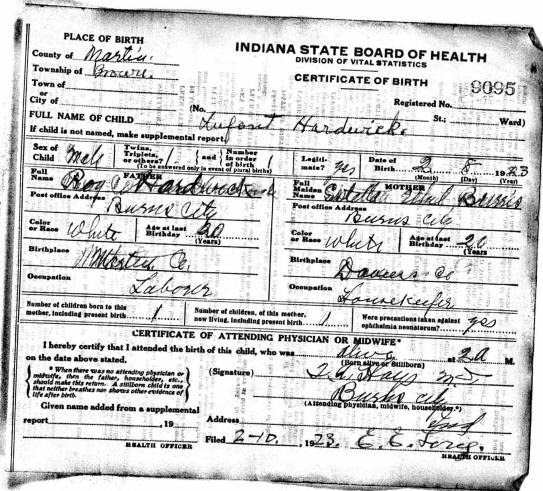 PLACE OF BIRTH
County of Martin
Township of Brown
Town of
or
City of
INDIANA STATE BOARD OF HEALTH
DIVISION OF VITAL STATISTICS
CERTIFICATE OF BIRTH
9095
Registered No.
(No. St.; Ward)
FULL NAME OF CHILD Infant Hardwick
If child is not named, make supplemental report.
Sex of Child Male
Twins, Triplets, or others? 1 and Number in order of birth 1
(To be answered only in event of plural births)
Legitimate? yes
Date of Birth 2 8 1923
(Month) (Day) (Year)
FATHER
Full Name Roy Hardwick
Post office Address
Burns City
Color or Race White
Age at last Birthday 20
(Years)
Birthplace
Martin Co.
Occupation
Laborer
MOTHER
Full Maiden Name Ethel Burris
Post office Address
Burns City
Color or Race White
Age at last Birthday 20
(Years)
Birthplace
Daviess Co
Occupation
Housekeeper
Number of children born to this mother, including present birth 1
Number of children, of this mother, now living, including present birth 1
Were precautions taken against ophthalmia neonatorum? yes
CERTIFICATE OF ATTENDING PHYSICIAN OR MIDWIFE*
I hereby certify that I attended the birth of this child, who was alive at 2 A M.
(Born alive or stillborn)
on the date above stated.
* When there was no attending physician or
midwife, then the father, householder, etc.,
should make this return. A stillborn child is one
that neither breathes nor shows other evidence of
life after birth.
(Signature) Hays M D
Burns City
(Attending physician, midwife, householder.*)
Given name added from a supplemental
report , 19
HEALTH OFFICER
Address Ind
Filed 2-10, 1923. E. E. Long.
HEALTH OFFICER